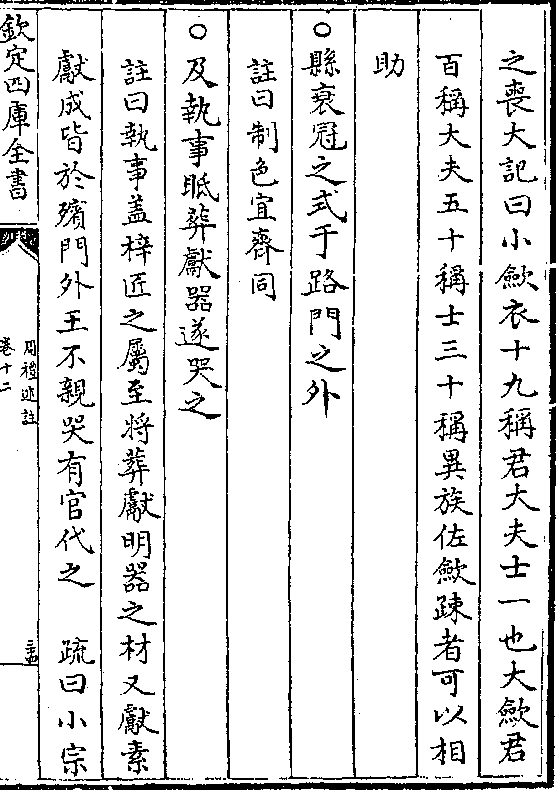 之喪大記曰小斂衣十九稱君大夫士一也大斂君
百稱大夫五十稱士三十稱異族佐斂疎者可以相
助
○縣衰冠之式于路門之外
註曰制色宜齊同
○及執事眡葬獻器遂哭之
註曰執事盖梓匠之屬至将葬獻明器之材又獻素
獻成皆於殯門外王不親哭有官代之 疏曰小宗
欽定四庫全書
周禮述註
卷十二